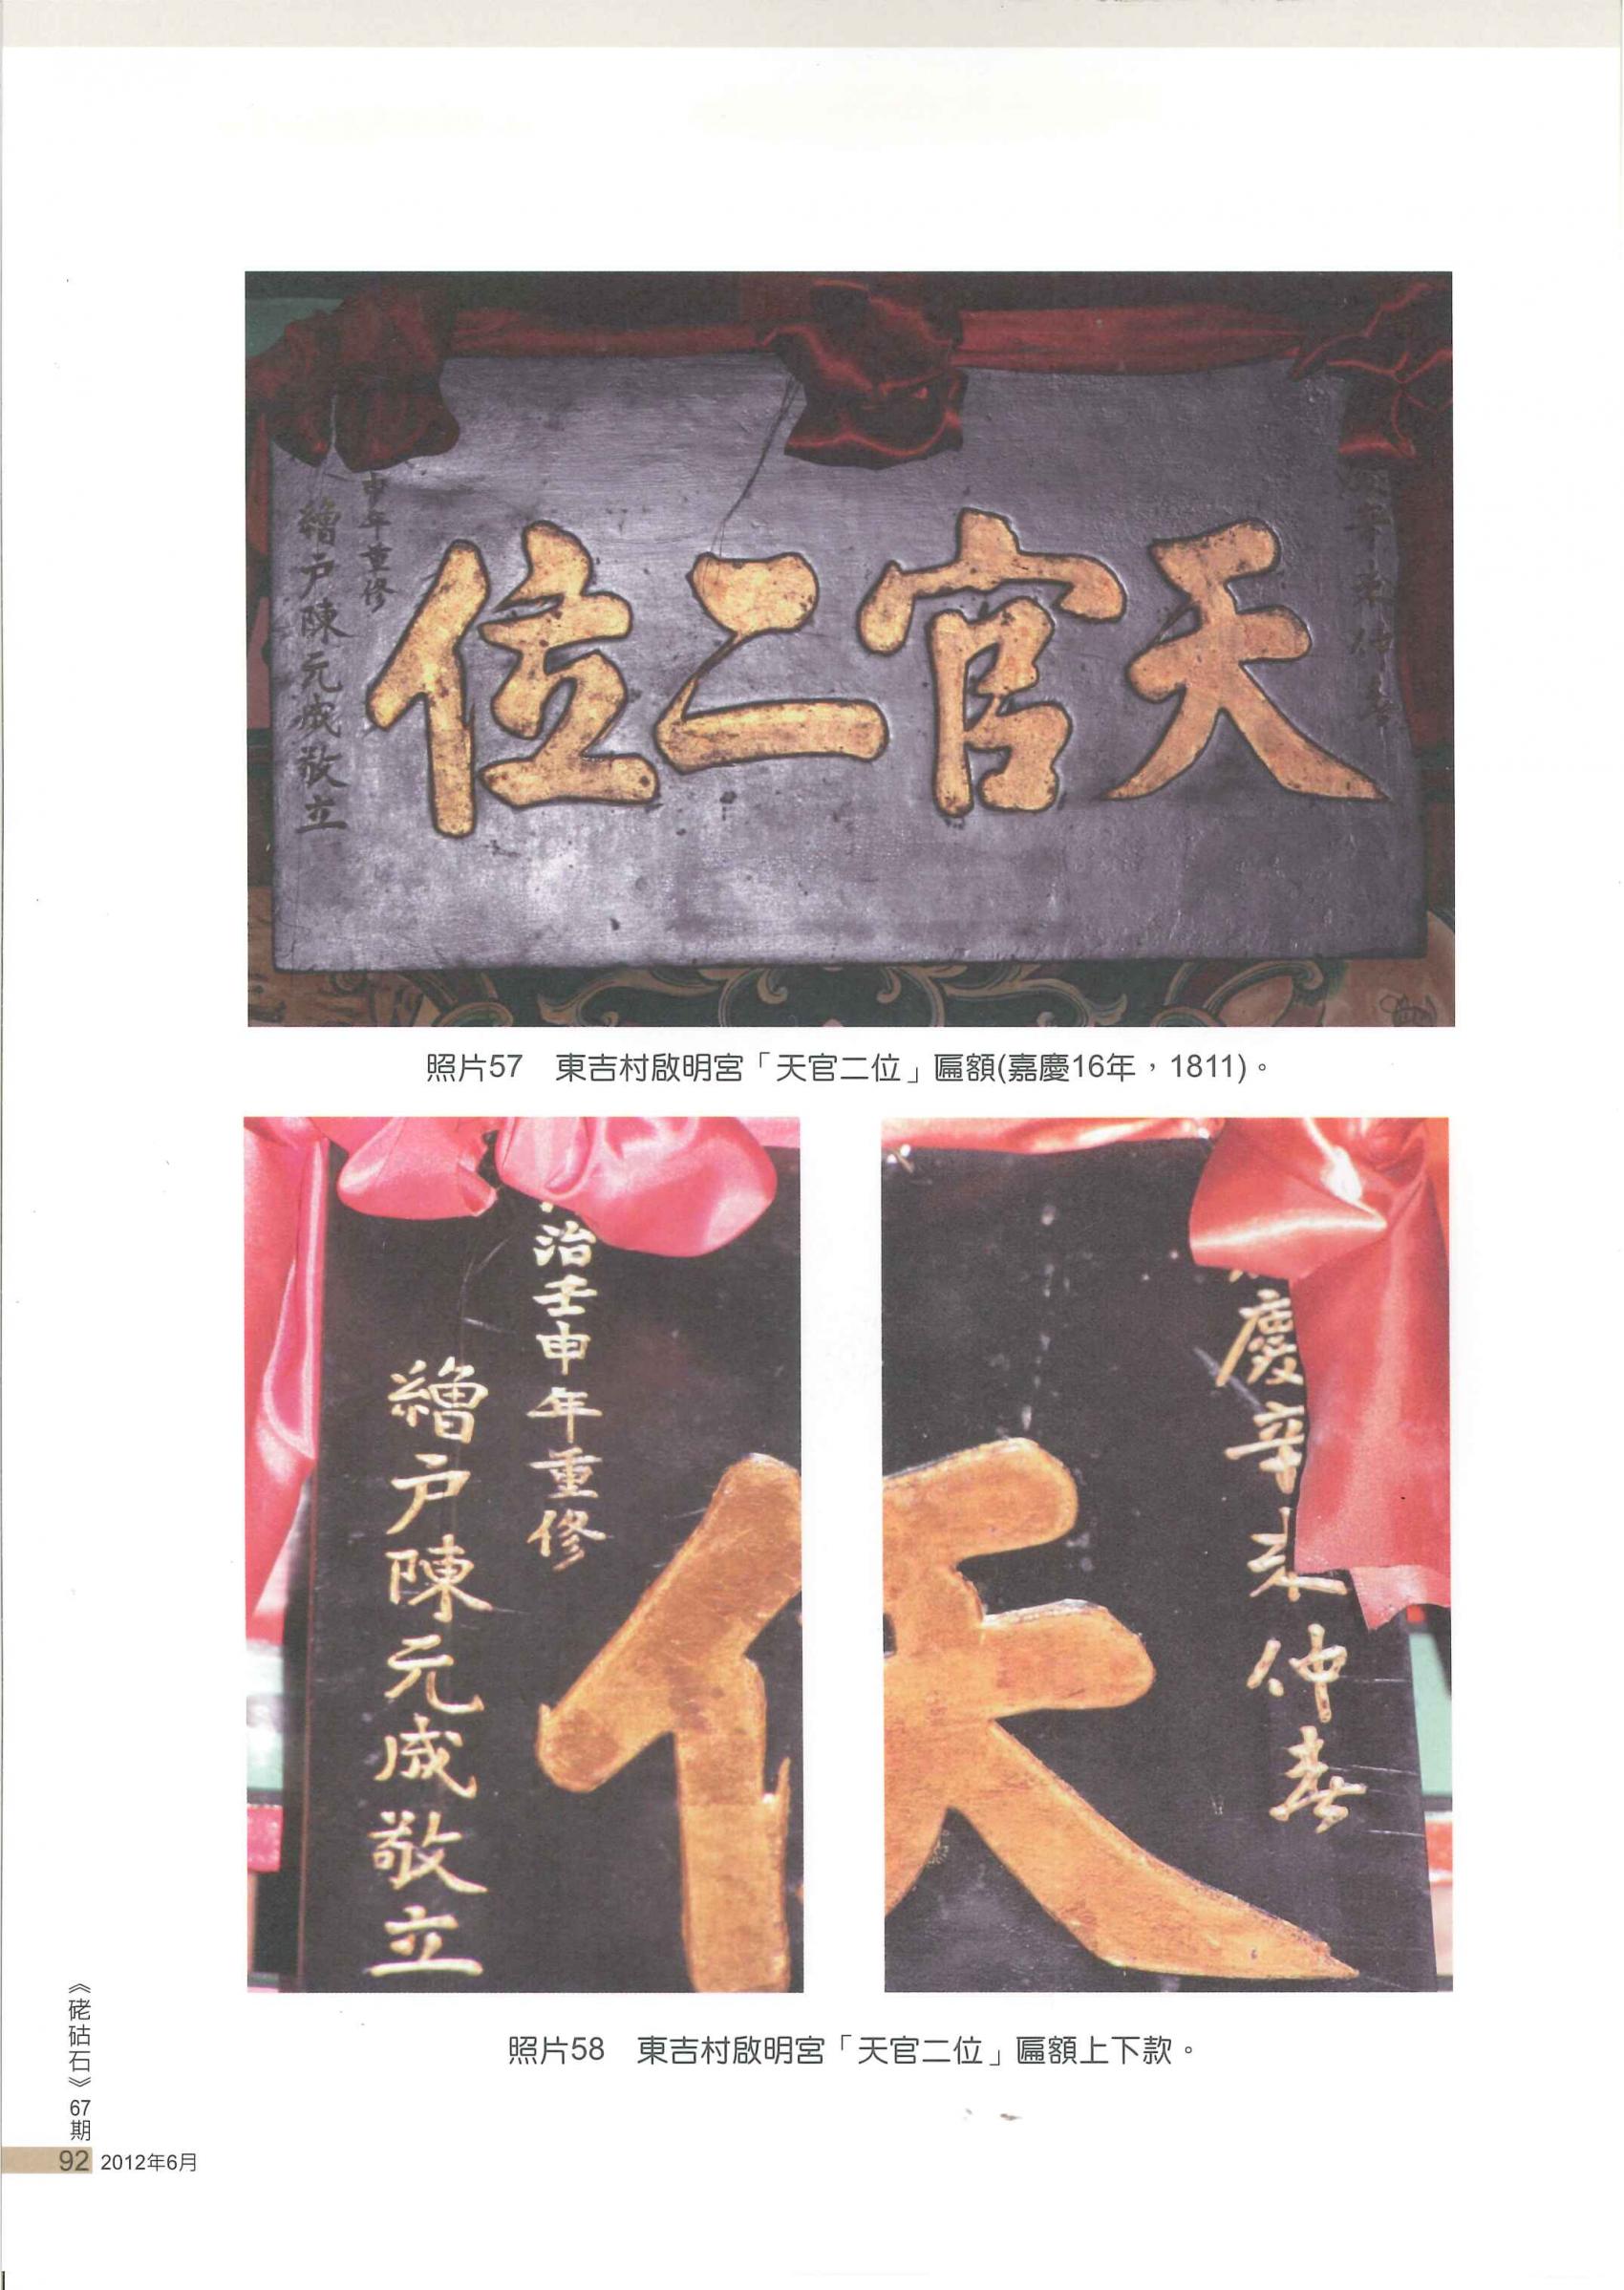 天官二位
申年重修
繒戶陳元成敬立
照片57　東吉村啟明宮「天官二位」匾額(嘉慶16年，1811)。
慶辛未仲春
治壬申年重修
繒戶陳元成敬立
照片58　東吉村啟明宮「天官二位」匾額上下款。
《硓𥑮石》67期
92 2012年6月